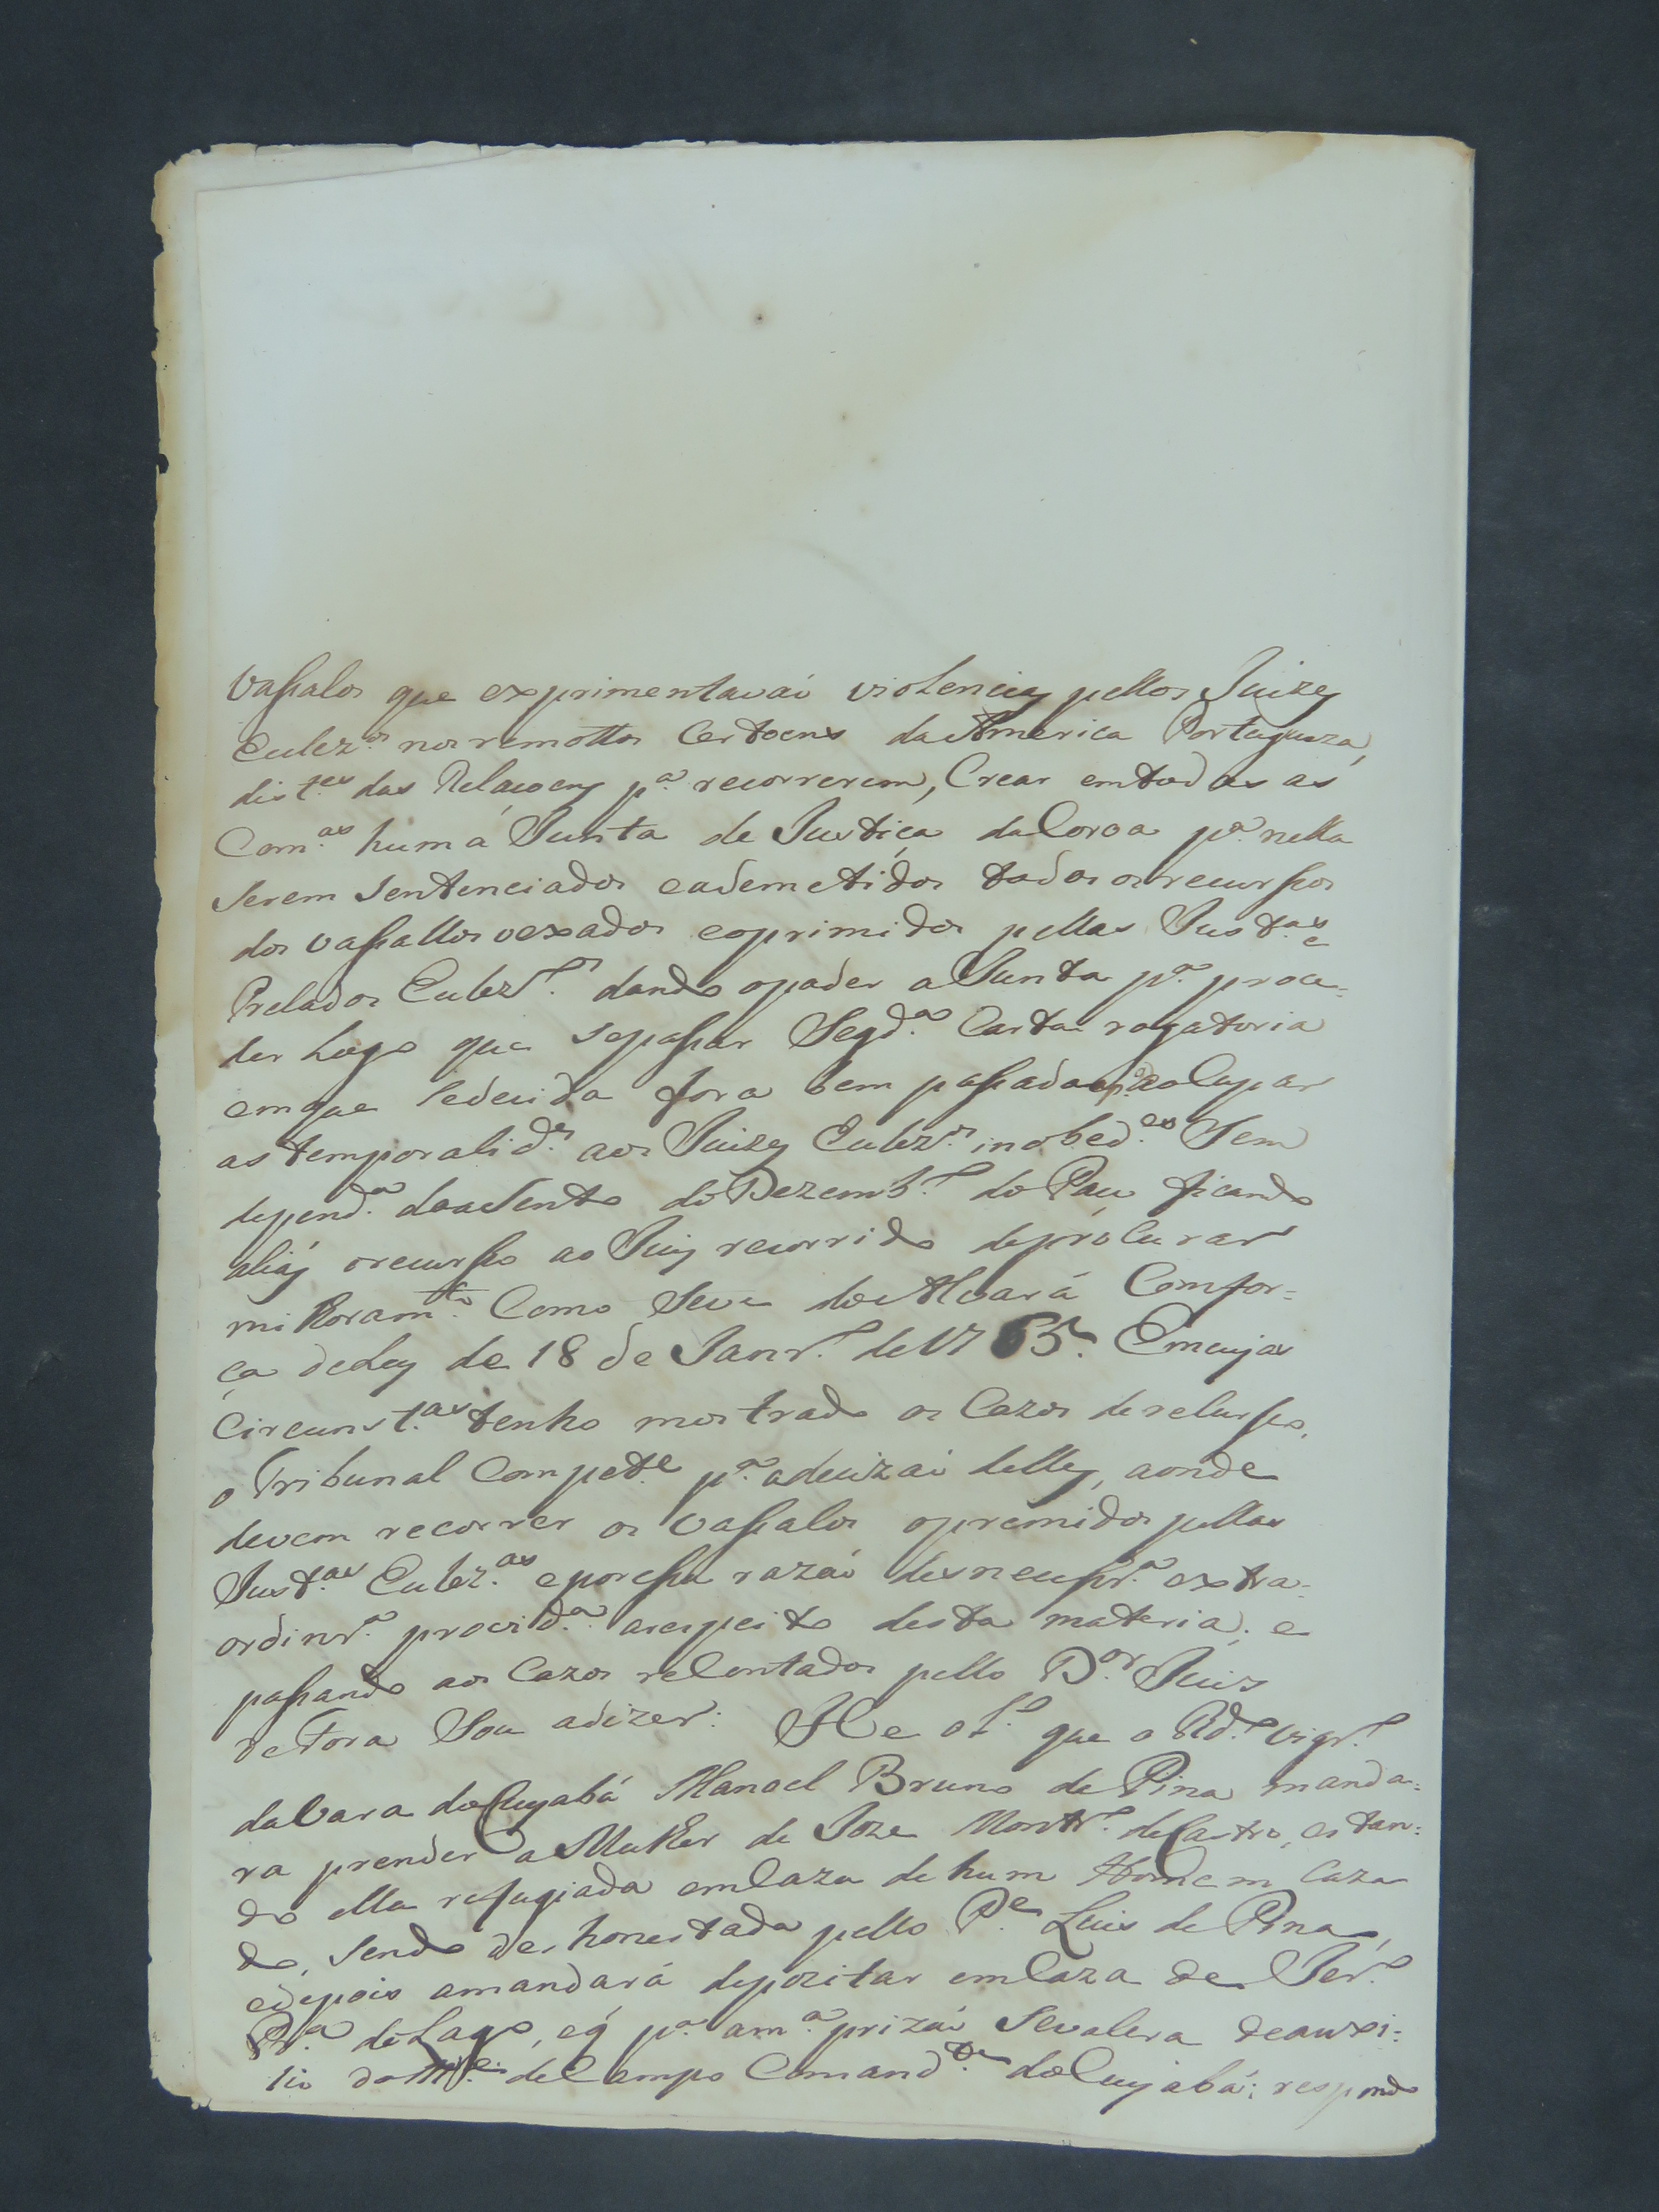 Vassalos que exprimentavaõ violencias pellos Juizes
Eclez.os nos remottos Certoens da America Portugueza,
dist.es das Relaçoens p.a recorrerem, Crear em todas as
Com.as huma Junta de Justiça da Coroa p.a nella
serem sentenciados e ademetidos todos os recursos
dos vassallos vexados e oprimidos pellas Just.as e
Prelados Eclez.os dando o poder a Junta p.a proce=
der Logo que se passar Seg.da Carta rogatoria
em que se decida fora bem passada a ocupar
as temporalid.es aos Juizes Eclez.os inobed.es Sem
depend.a do asento do Dezemb.o do Paço ficando
aliás o recurso ao Juis recorrido de procurar
milhoram.to Como Se ve do Alvará Com for=
ça de Ley de 18 de Janr.o de 1765. Em cujas
circunst.as tenho mostrado os Cazos de recurso,
o Tribunal Compet.e p.a a decizaõ delles, aonde
devem recorrer os vassalos opremidos pellas
Just.as Eclez.as e por essa razaõ desnecessr.a extra=
ordinr.a provid.a a respeito desta materia; e
passando aos Cazos relentados pello D.or Juis
de Fora Sou a dizer: He o 1.o que o R.do Vigr.o
da Vara do Cuyabá Manoel Bruno de Pina manda=
ra prender a Mulher de Joze Montr.o de Castro, estan=
do ella refugiada em Caza de hum Homem Caza
do, sendo deshonestada pello P.e Luis de Pina,
e depois a mandará depozitar em Caza de Jer.o
Pr.a do Lago, e q p.a a m.a prizaõ Se valera de auxi=
lio do M.e de Campo Comand.te do Cuyabá; respondo